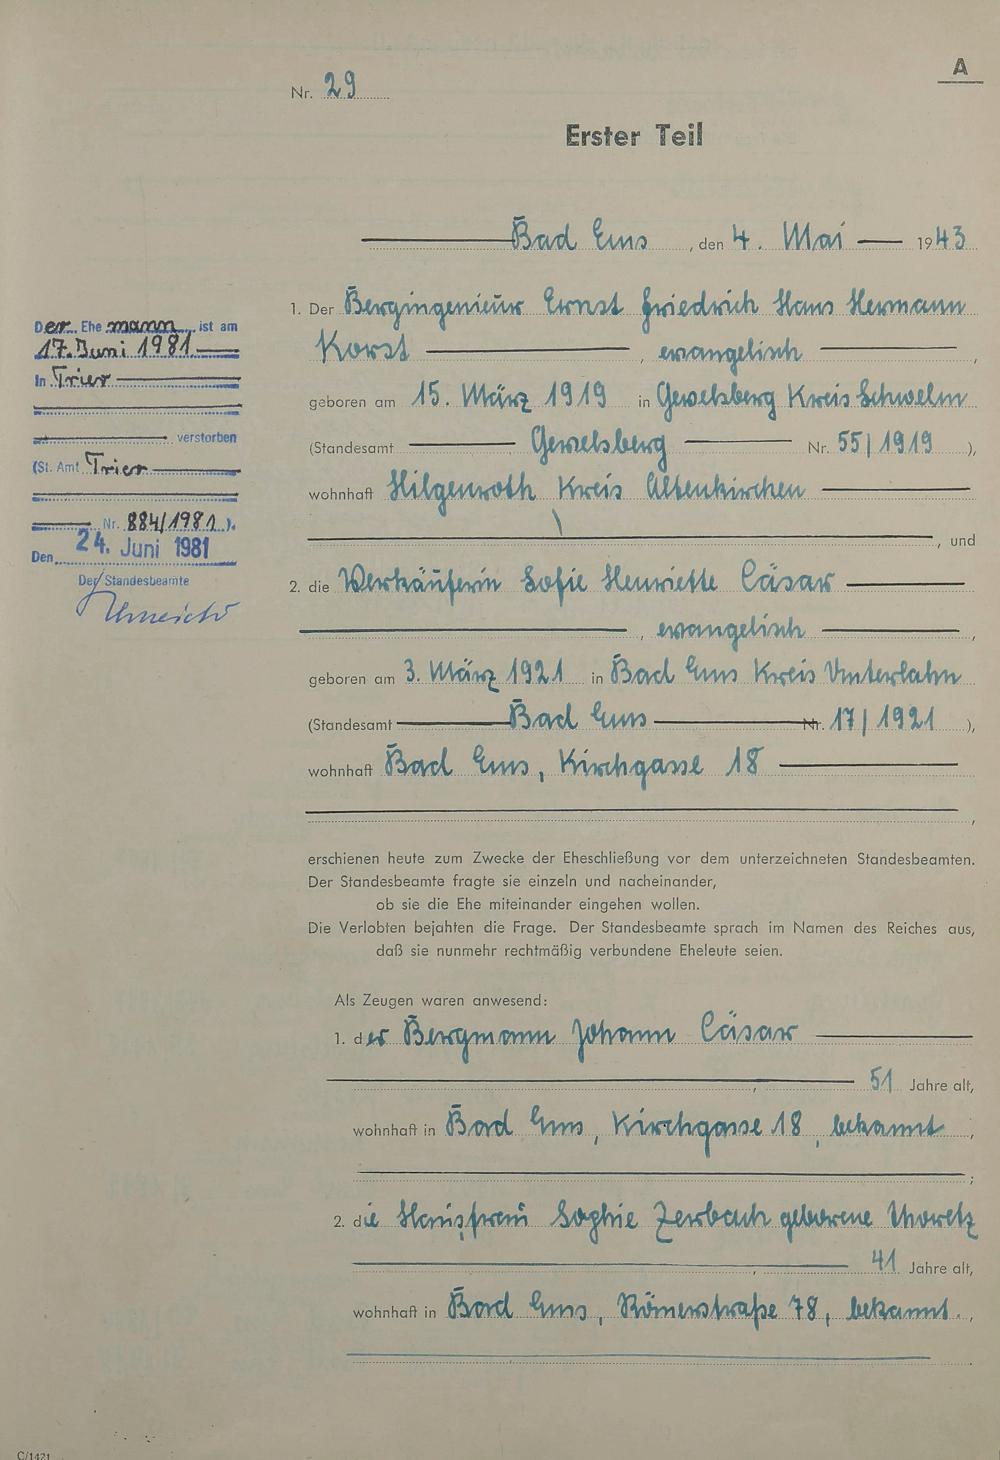 A
Nr. 29
Erster Teil
Bad Ems, den 4. Mai 1943
1. Der Bergingenieur Ernst Friedrich Hans Hermann
Korst, evangelisch,
geboren am 15. März 1919 in Gevelsberg Kreis Schwelm
(Standesamt Gevelsberg Nr. 55/1919),
wohnhaft Hilgenroth Kreis Altenkirchen
, und
2. die Verkäuferin Sofie Henriette Cäsar
, evangelisch,
geboren am 3. März 1921 in Bad Ems Kreis Unterlahn
(Standesamt Bad Ems Nr. 17/1921),
wohnhaft Bad Ems, Kirchgasse 18
,
erschienen heute zum Zwecke der Eheschließung vor dem unterzeichneten Standesbeamten.
Der Standesbeamte fragte sie einzeln und nacheinander,
ob sie die Ehe miteinander eingehen wollen.
Die Verlobten bejahten die Frage. Der Standesbeamte sprach im Namen des Reiches aus,
daß sie nunmehr rechtmäßig verbundene Eheleute seien.
Als Zeugen waren anwesend:
1. der Bergmann Johann Cäsar
, 51 Jahre alt,
wohnhaft in Bad Ems, Kirchgasse 18, bekannt,
;
2. die Hausfrau Sophie Zerbach geborene
, 41 Jahre alt,
wohnhaft in Bad Ems, Römerstraße 78, bekannt.,
Der Ehemann ist am
17. Juni 1981
in Trier
verstorben
(St. Amt Trier
Nr. 884/1981).
Den 24. Juni 1981
Der Standesbeamte
C/1421